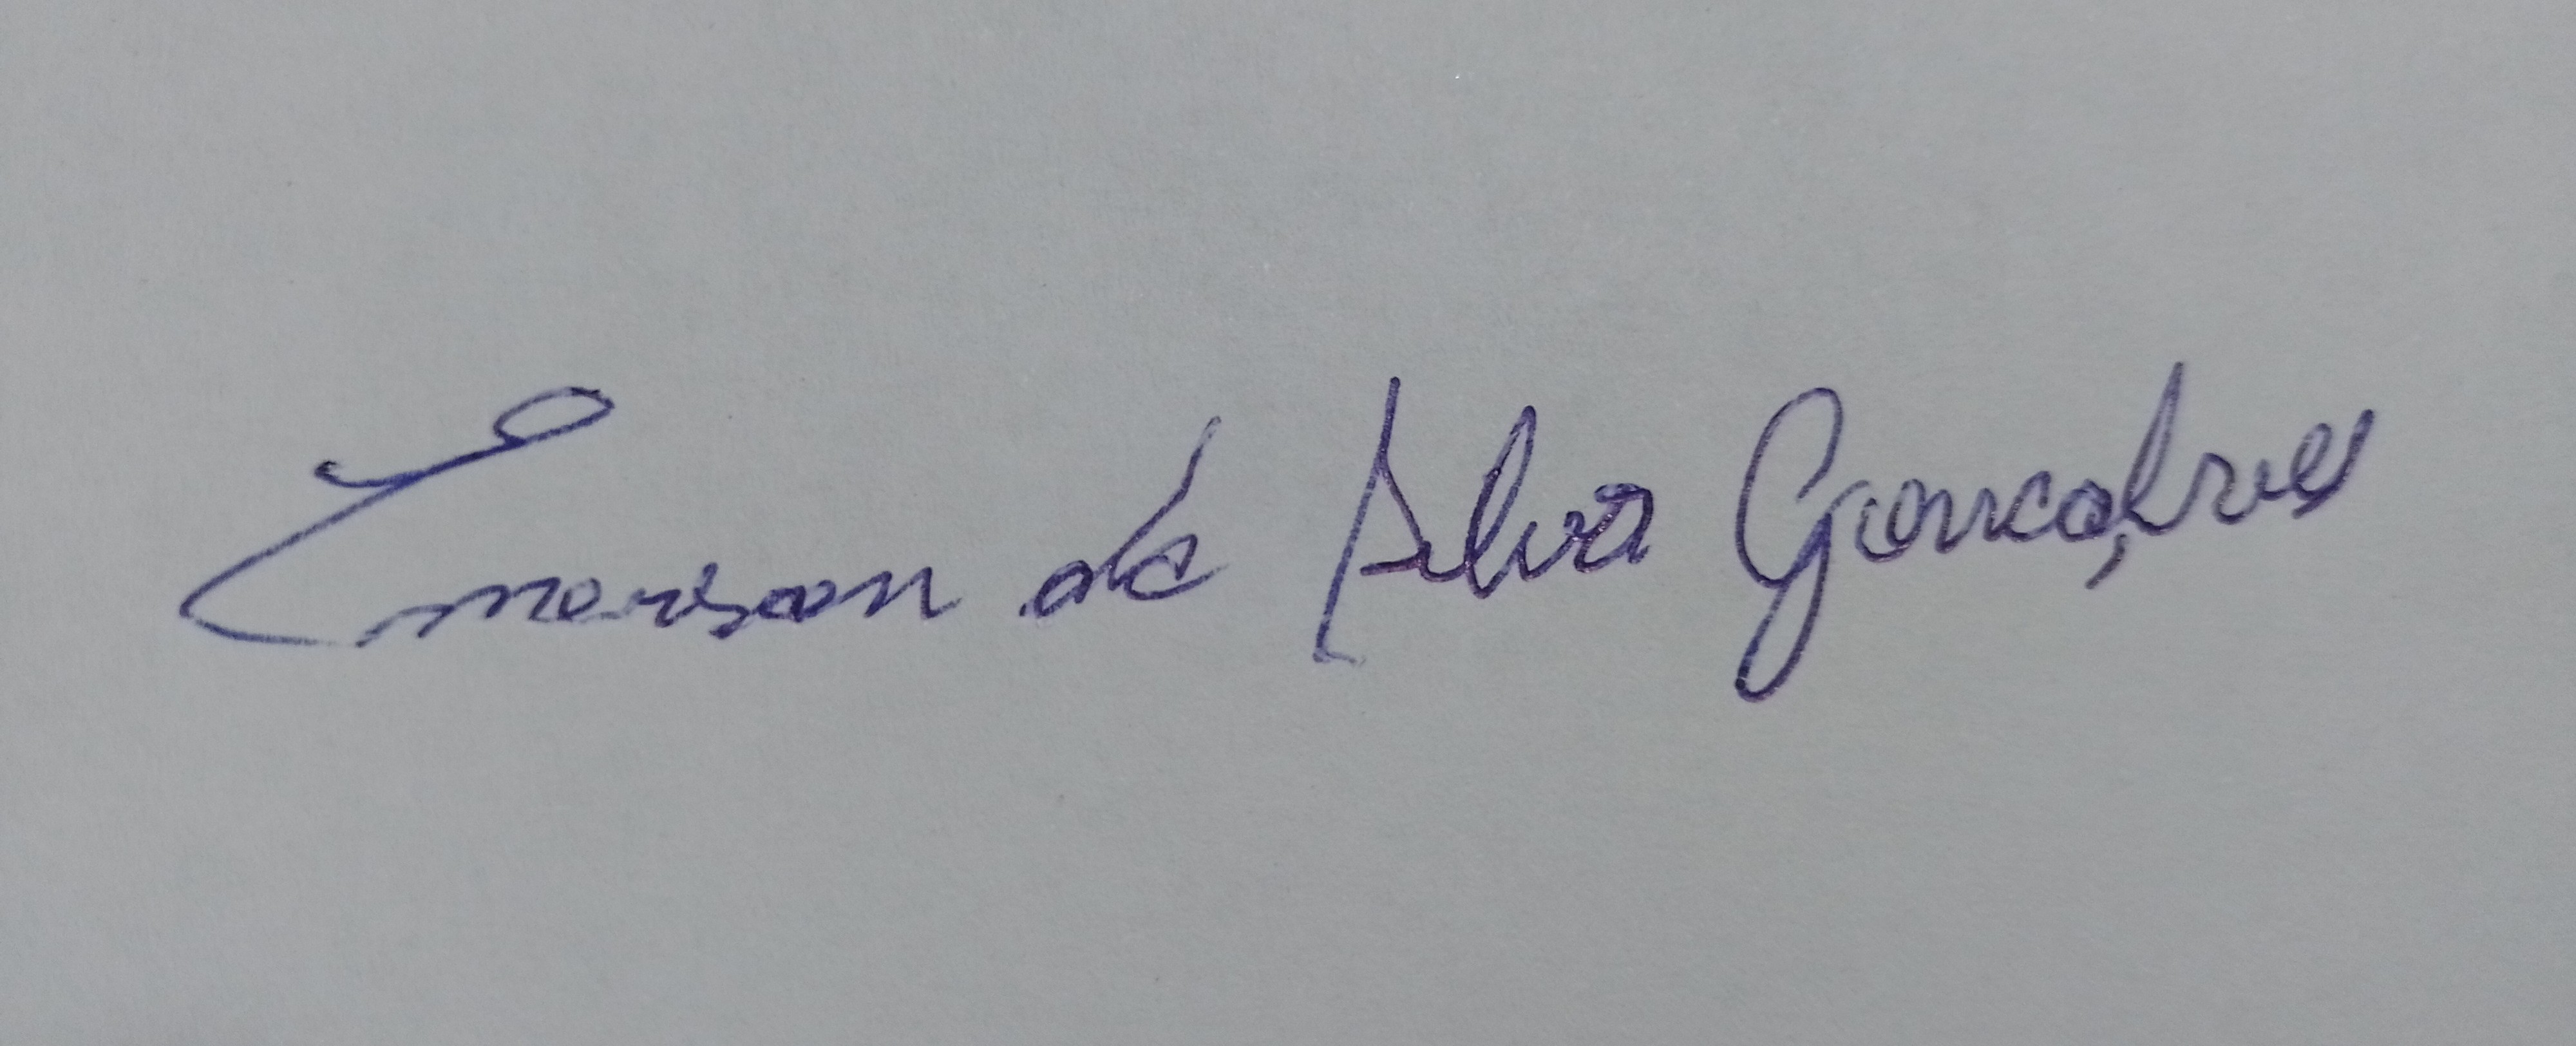 Emerson da Silva Gonçalves